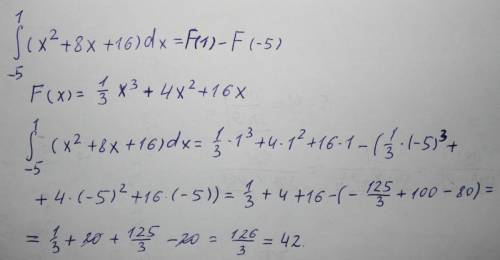 ∫₋₅¹ (x² + 8x + 16) dx = F(1) − F(−5)
F(x) = 1/3 x³ + 4x² + 16x
∫₋₅¹ (x² + 8x + 16) dx = 1/3 · 1³ + 4 · 1² + 16 · 1 − (1/3 · (−5)³ +
+ 4 · (−5)² + 16 · (−5)) = 1/3 + 4 + 16 − (− 125/3 + 100 − 80) =
= 1/3 + 20 + 125/3 − 20 = 126/3 = 42.